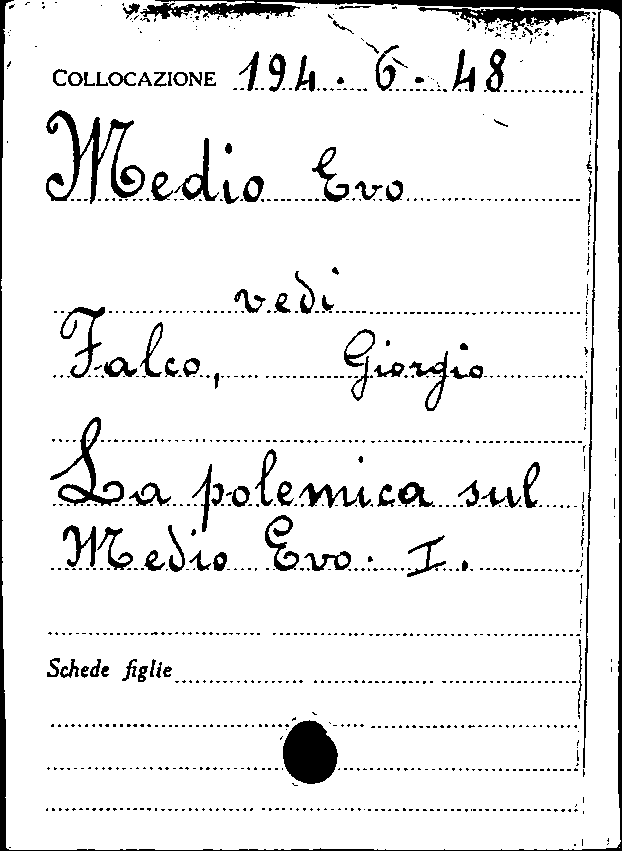 COLLOCAZIONE 194. 6. 48
Medio Evo
vedi
Falco, Giorgio
La polemica sul
Medio Evo. I.
Schede figlie